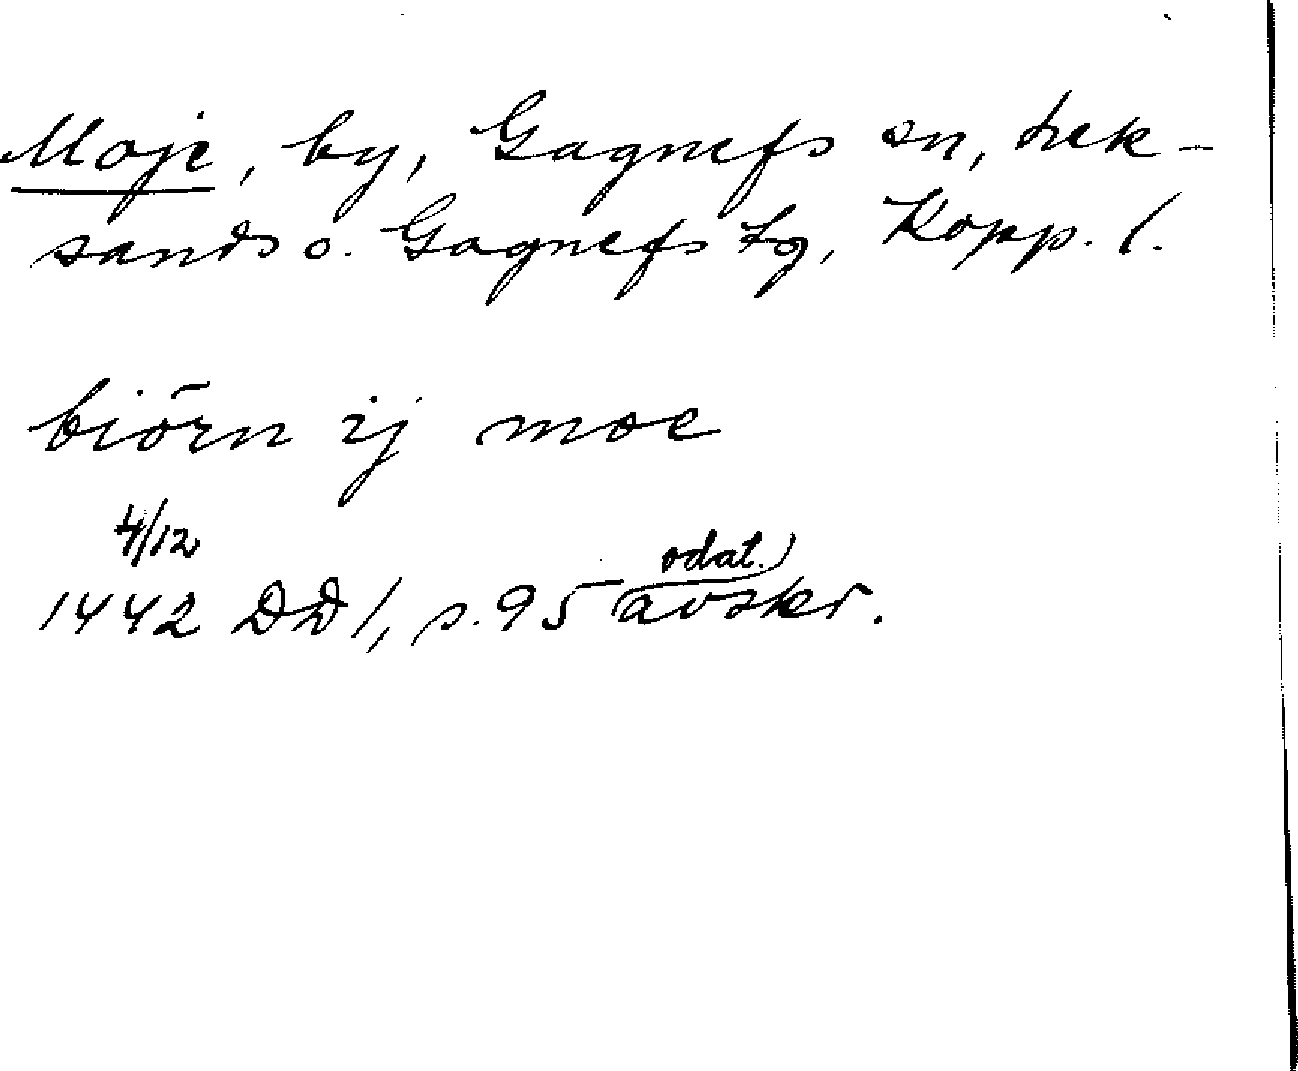 Moje, by, Gagnefs sn, Lek-
sands o. Gagnefs tg, Kopp. l.
biörn ij moe
4/12
odat.)
1442 DD 1, s. 95 avskr.